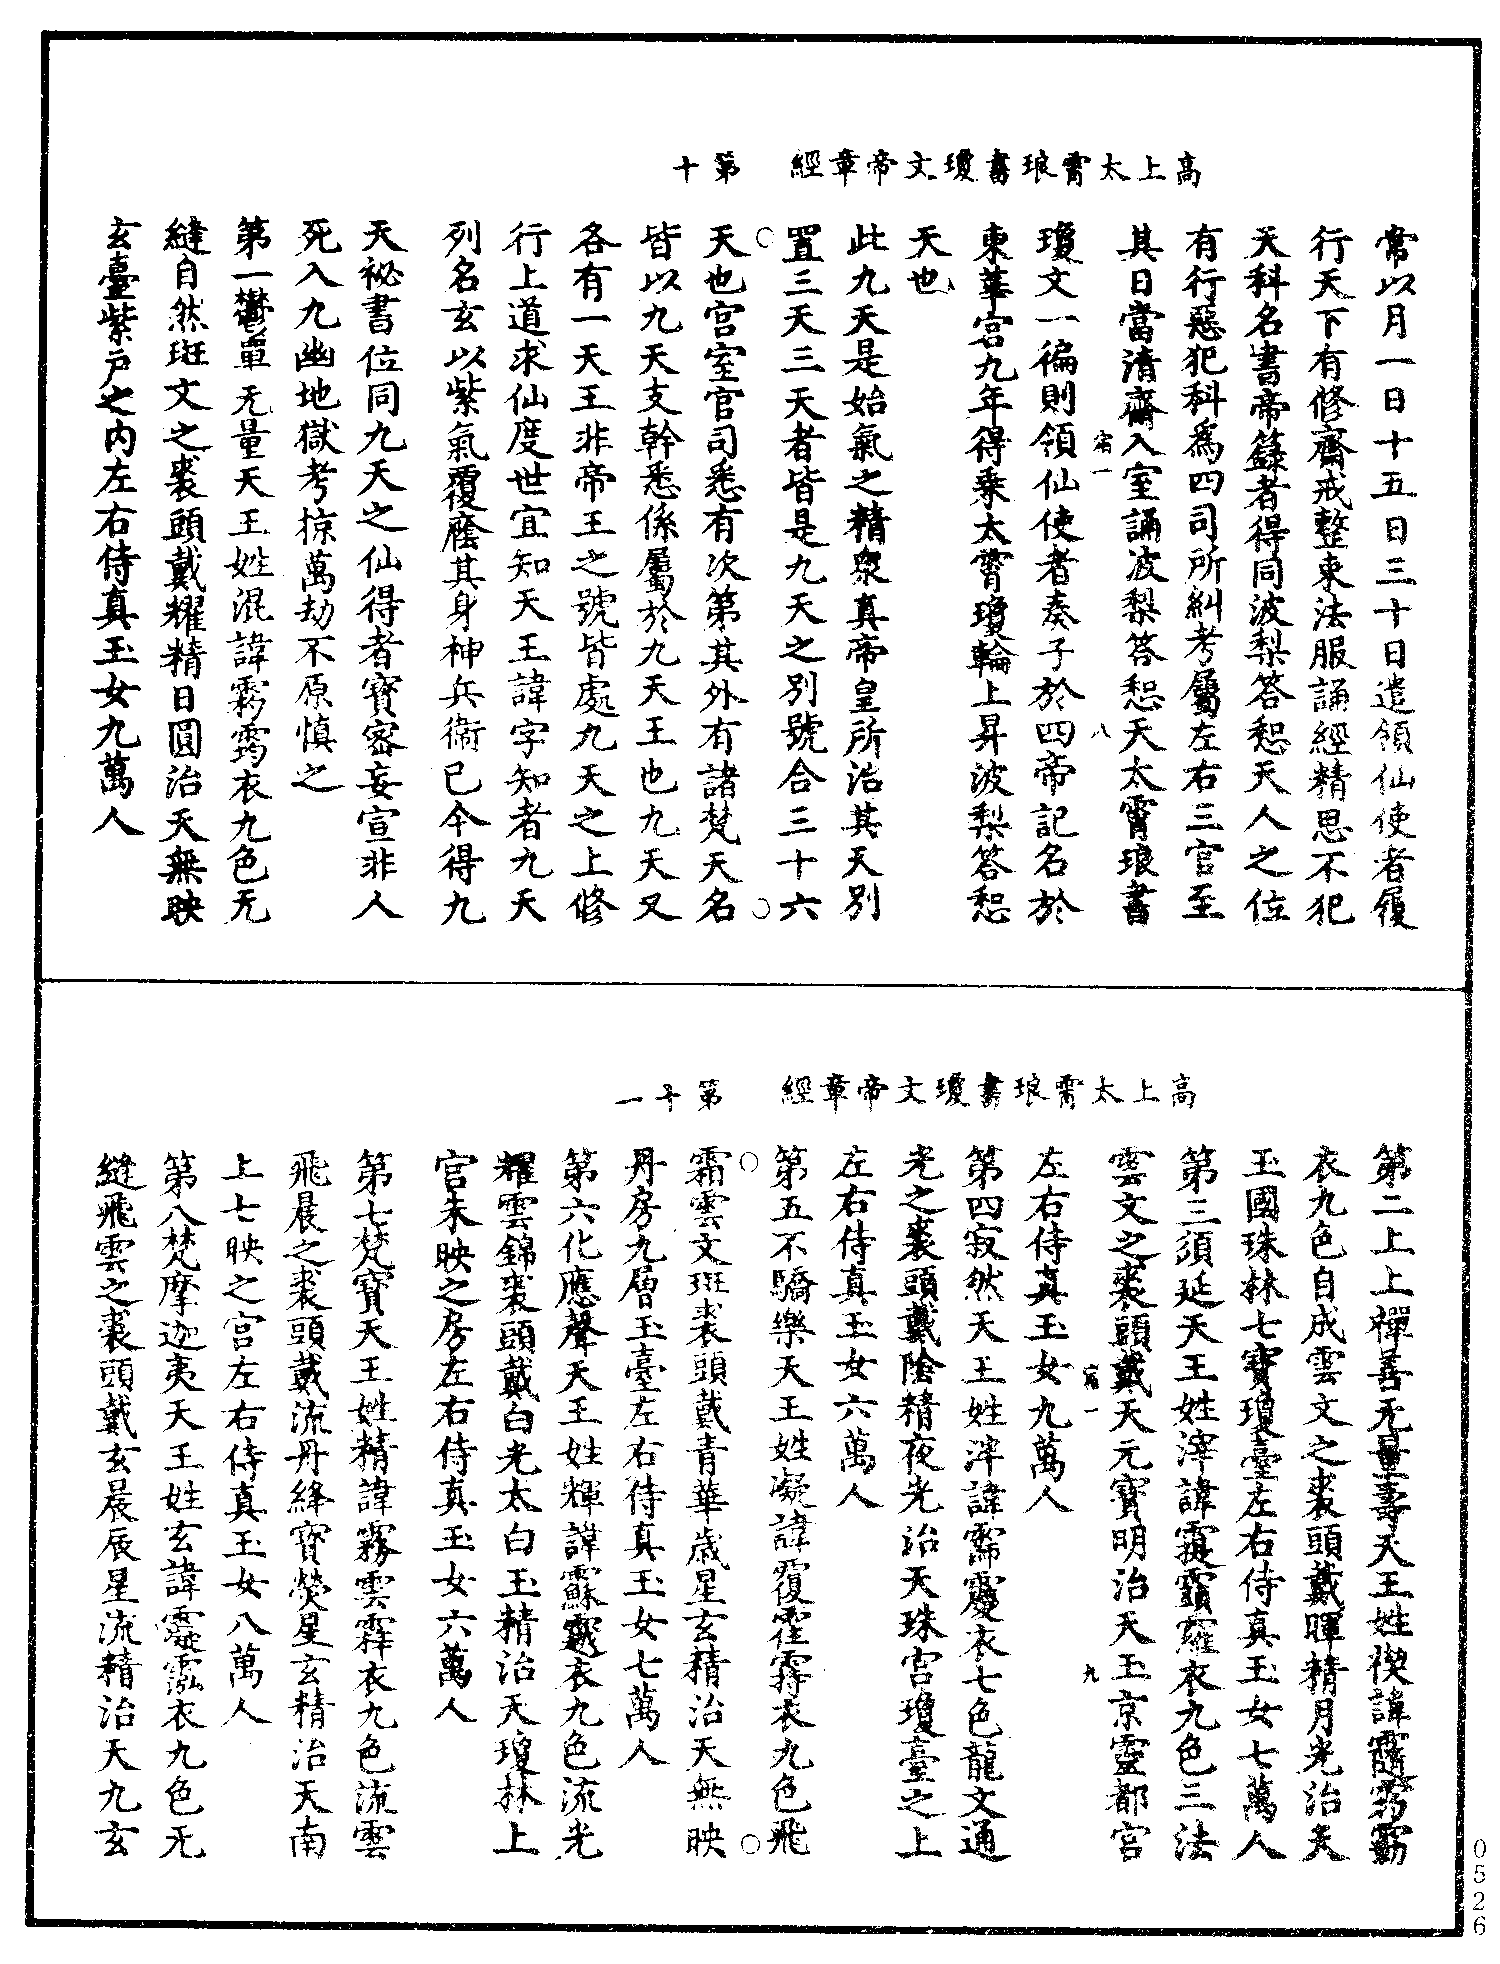 高上太霄琅書瓊文帝章經 第十
常以月一日十五日三十日遣領仙使者履
行天下有修齋戒整束法服誦經精思不犯
天科名書帝籙者得同波梨答恕天人之位
有行惡犯科為四司所糾考屬左右三官至
其日當清齋入室誦波梨答恕天太霄琅書
宿一 八
瓊文一徧則領仙使者奏子於四帝記名於
東華宮九年得乗太霄瓊輪上昇波梨答恕
天也
此九天是始氣之精衆真帝皇所治其天別
置三天三天者皆是九天之別號合三十六
天也宮室官司悉有次第其外有諸梵天名
皆以九天支幹悉係屬於九天王也九天又
各有一天王非帝王之號皆處九天之上修
行上道求仙度世宜知天王諱字知者九天
列名玄以紫氣覆廕其身神兵衞已今得九
天祕書位同九天之仙得者寶密妄宣非人
死入九幽地獄考掠萬劫不原慎之
第一鬱單无量天王姓混諱霧衣九色无
縫自然斑文之裘頭戴耀精日圓治天無映
玄臺紫戶之內左右侍真玉女九萬人
高上太霄琅書瓊文帝章經 第十一
第二上上禪善无量壽天王姓禊諱
衣九色自成雲文之裘頭戴暉精月光治天
玉國珠林七寶瓊臺左右侍真玉女七萬人
第三須延天王姓滓諱衣九色三法
雲文之裘頭戴天元寶明治天玉京靈都宮
宿一 九
左右侍真玉女九萬人
第四寂然天王姓諱衣七色龍文通
光之裘頭戴陰精夜光治天珠宮瓊臺之上
左右侍真玉女六萬人
第五不驕樂天王姓凝諱覆霍衣九色飛
霜雲文斑裘頭戴青華歲星玄精治天無映
丹房九層玉臺左右侍真玉女七萬人
第六化應聲天王姓輝諱衣九色流光
耀雲錦裘頭戴白光太白玉精治天瓊林上
宮朱映之房左右侍真玉女六萬人
第七梵寶天王姓精諱霧雲衣九色流雲
飛晨之裘頭戴流丹絳寶熒星玄精治天南
上七映之宮左右侍真玉女八萬人
第八梵摩迦夷天王姓玄諱衣九色无
縫飛雲之裘頭戴玄晨辰星流精治天九玄
0526